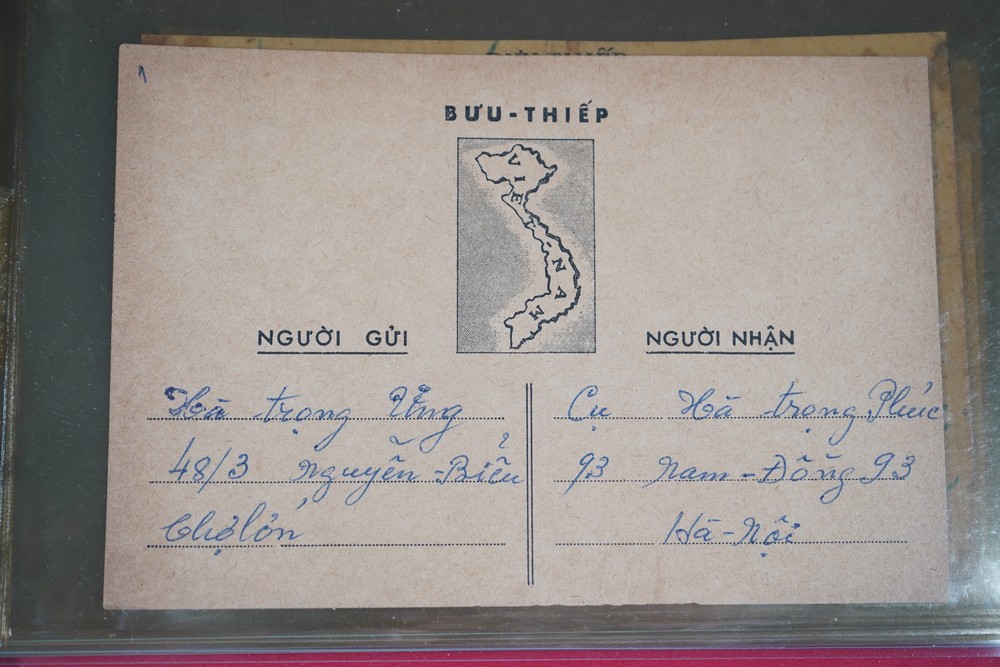 BƯU-THIẾP
VIỆT-NAM
NGƯỜI GỬI
Hà trọng Ưng
48/3 Nguyễn-Biểu
Chợlớn
NGƯỜI NHẬN
Cụ Hà trọng Phúc
93 Nam-Đồng 93
Hà-Nội